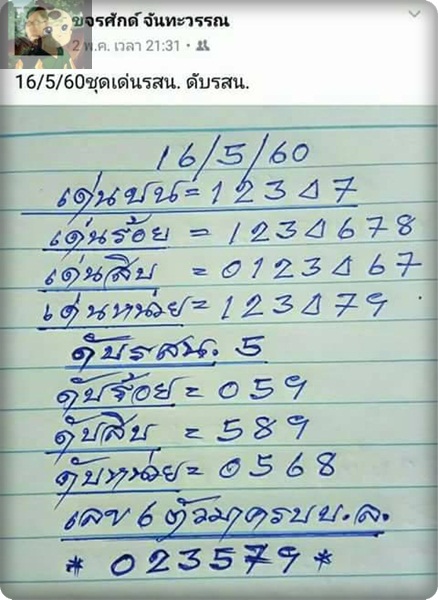 ขจรศักด์ จันทะวรรณ
2 พ.ค. เวลา 21:31 •
16/5/60ชุดเด่นรสน. ดับรสน.
16/5/60
เด่นบน=12347
เด่นร้อย = 1234678
เด่นสิบ = 0123467
เด่นหน่วย=123479
ดับรสน. 5
ดับร้อย=059
ดับสิบ =589
ดับหน่วย=0568
เลข 6 ตัวมาครบบ.ล.
* 023579 *